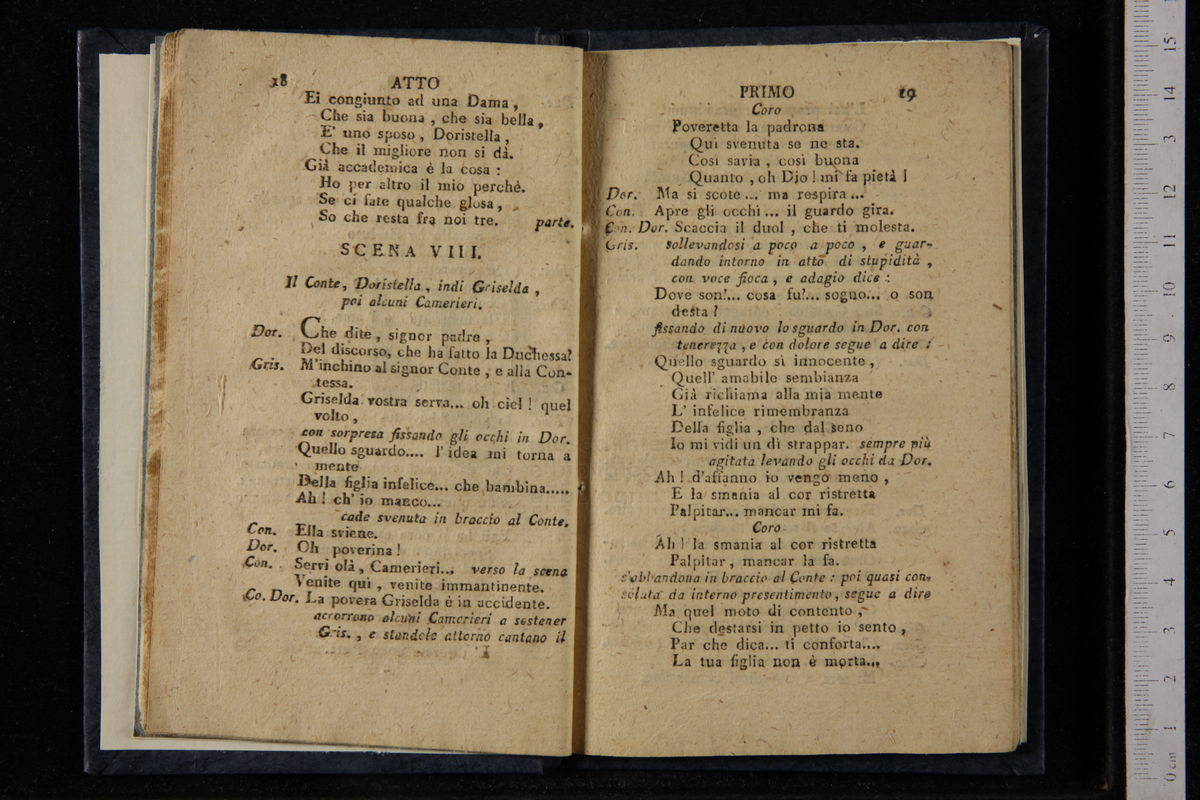 18 ATTO
Ei congiunto ad una Dama,
Che sia buona, che sia bella,
E' uno sposo, Doristella,
Che il migliore non si dà.
Già accademica è la cosa:
Ho per altro il mio perchè.
Se ci fate qualche glosa,
So che resta fra noi tre. parte.
SCENA VIII.
Il Conte, Doristella, indi Griselda,
poi alcuni Camerieri.
Dor. Che dite, signor padre,
Del discorso, che ha fatto la Duchessa?
Gris. M'inchino al signor Conte, e alla Con-
tessa.
Griselda vostra serva... oh ciel! quel
volto,
con sorpresa fissando gli occhi in Dor.
Quello sguardo.... l'idea mi torna a
mente
Della figlia infelice... che bambina.....
Ah! ch' io manco...
cade svenuta in braccio al Conte.
Con. Ella sviene.
Dor. Oh poverina!
Con. Servi olà, Camerieri... verso la scena
Venite qui, venite immantinente.
Co. Dor. La povera Griselda è in accidente.
accorrono alcuni Camerieri a sostener
Gris., e standole attorno cantano il
PRIMO 19
Coro
Poveretta la padrona
Qui svenuta se ne sta.
Così savia, così buona
Quanto, oh Dio! mi fa pietà!
Dor. Ma si scote... ma respira...
Con. Apre gli occhi... il guardo gira.
Con. Dor. Scaccia il duol, che ti molesta.
Gris. sollevandosi a poco a poco, e guar-
dando intorno in atto di stupidità,
con voce fioca, e adagio dice:
Dove son!... cosa fu!... sogno... o son
desta?
fissando di nuovo lo sguardo in Dor. con
tenerezza, e con dolore segue a dire:
Quello sguardo sì innocente,
Quell' amabile sembianza
Già richiama alla mia mente
L' infelice rimembranza
Della figlia, che dal seno
Io mi vidi un dì strappar. sempre più
agitata levando gli occhi da Dor.
Ah! d'affanno io vengo meno,
E la smania al cor ristretta
Palpitar... mancar mi fa.
Coro
Ah! la smania al cor ristretta
Palpitar, mancar la fa.
s'abbandona in braccio al Conte: poi quasi con-
solata da interno presentimento, segue a dire
Ma quel moto di contento,
Che destarsi in petto io sento,
Par che dica... ti conforta....
La tua figlia non è morta...
0 cm 1 2 3 4 5 6 7 8 9 10 11 12 13 14 15